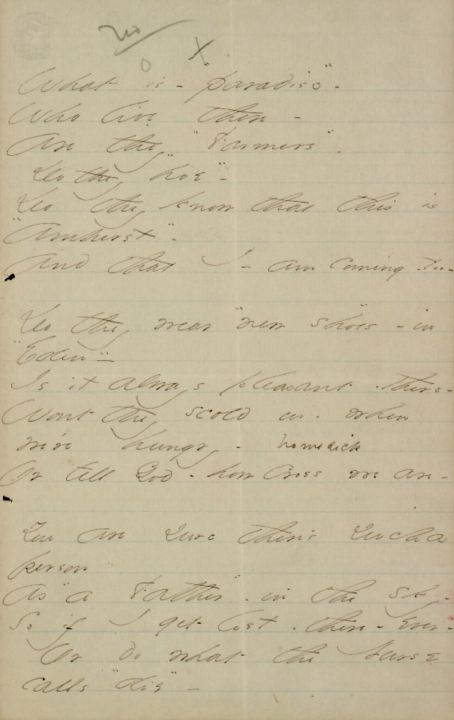 X.
What is - "Paradise" -
Who live there -
Are they "Farmers" -
Do they "hoe" -
Do they know that this is
"Amherst" -
And that I - am coming - too -
Do they wear "new shoes" - in
"Eden" -
Is it always pleasant - there -
Wont they scold us - when
we're hungry - homesick
Or tell God - how cross we are -
You are sure there's such a
person
As "a Father" - in the sky -
So if I get lost - there - ever -
Or do what the Nurse
calls "die" -